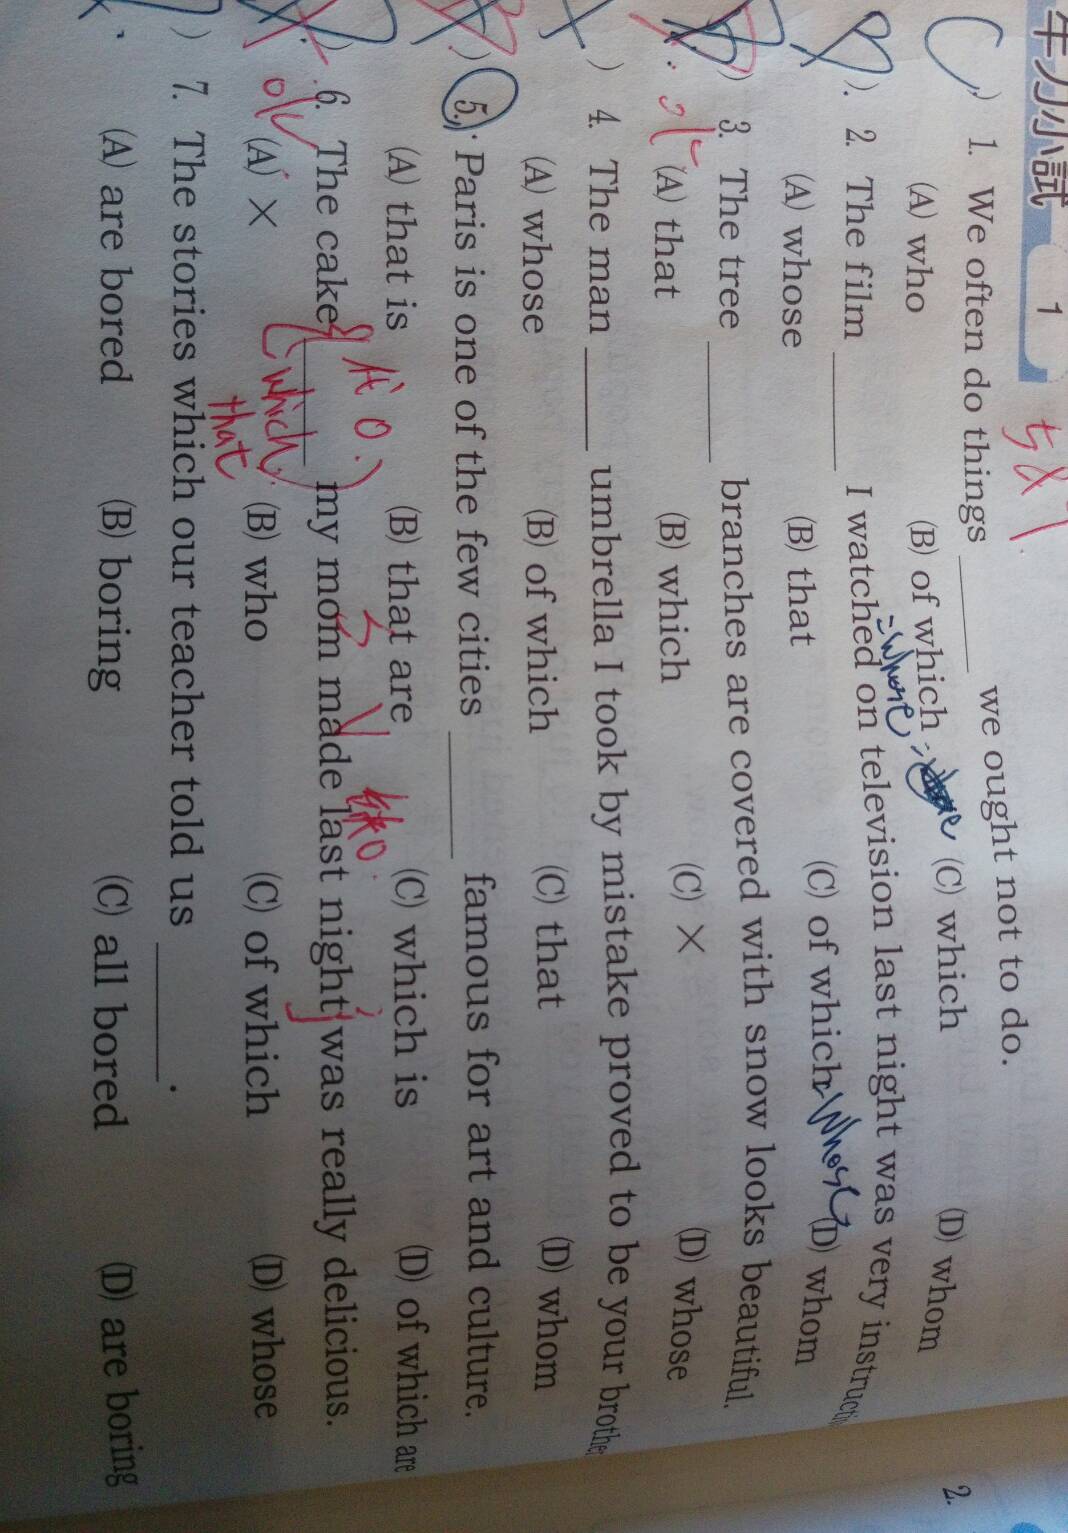 牛刀小試 1
1. We often do things ______ we ought not to do.
(A) who (B) of which (C) which (D) whom
= whose
2. The film ______ I watched on television last night was very
(A) whose (B) that (C) of which (D) whom
whose
3. The tree ______ branches are covered with snow looks beautiful.
(A) that (B) which (C) × (D) whose
4. The man ______ umbrella I took by mistake proved to be your
(A) whose (B) of which (C) that (D) whom
5. Paris is one of the few cities ______ famous for art and culture.
(A) that is (B) that are (C) which is (D) of which are
6. The cake ______ my mom made last night was really delicious.
which
that
(A) × (B) who (C) of which (D) whose
7. The stories which our teacher told us ______.
(A) are bored (B) boring (C) all bored (D) are boring
2.